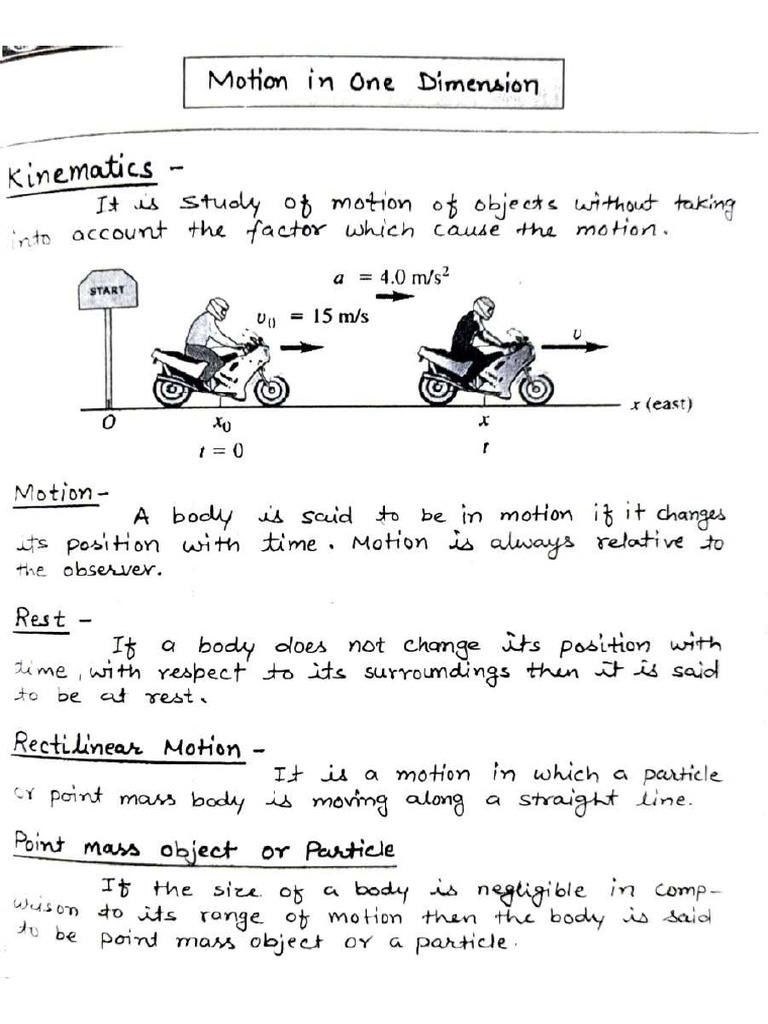 Motion in One Dimension
Kinematics -
It is study of motion of objects without taking
into account the factor which cause the motion.
a = 4.0 m/s²
START
υ₀ = 15 m/s
υ
x (east)
O x₀ x
t = 0 t
Motion -
A body is said to be in motion if it changes
its position with time. Motion is always relative to
the observer.
Rest -
If a body does not change its position with
time, with respect to its surroundings then it is said
to be at rest.
Rectilinear Motion -
It is a motion in which a particle
or point mass body is moving along a straight line.
Point mass object or Particle
If the size of a body is negligible in comp-
to its range of motion then the body is said
to be point mass object or a particle.